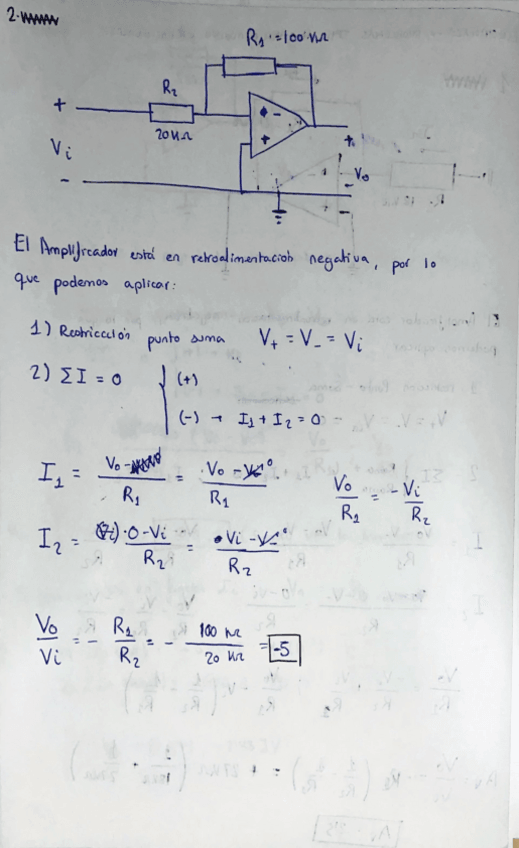 2.
R1 = 100 kΩ
R2
20 kΩ
+
Vi
-
- 
+
+
Vo
-
El Amplificador está en retroalimentación negativa, por lo
que podemos aplicar:
1) Restricción punto suma V+ = V- = Vi
2) ΣI = 0 { (+)
(-) → I1 + I2 = 0
I1 = Vo - / R1 = Vo - V-⁰ / R1
Vo / R1 = - Vi / R2
I2 = 0 - Vi / R2 = Vi - V-⁰ / R2
Vo / Vi = - R1 / R2 = - 100 kΩ / 20 kΩ = -5